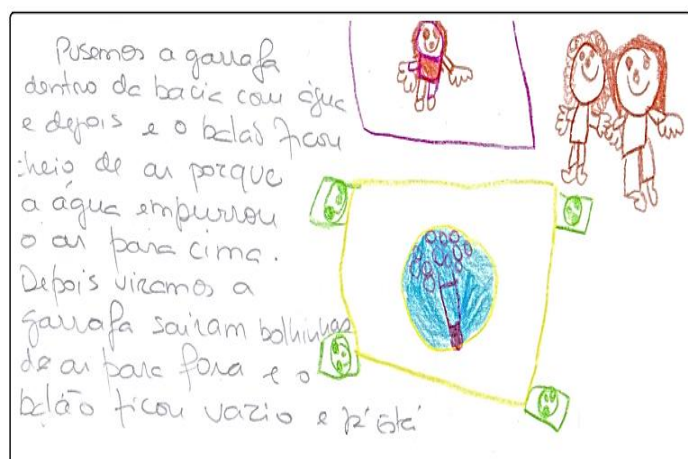 Pusemos a garrafa
dentro da bacia com água
e depois e o balão ficou
cheio de ar porque
a água empurrou
o ar para cima.
Depois viramos a
garrafa sairam bolhinhas
de ar para fora e o
balão ficou vazio e já está